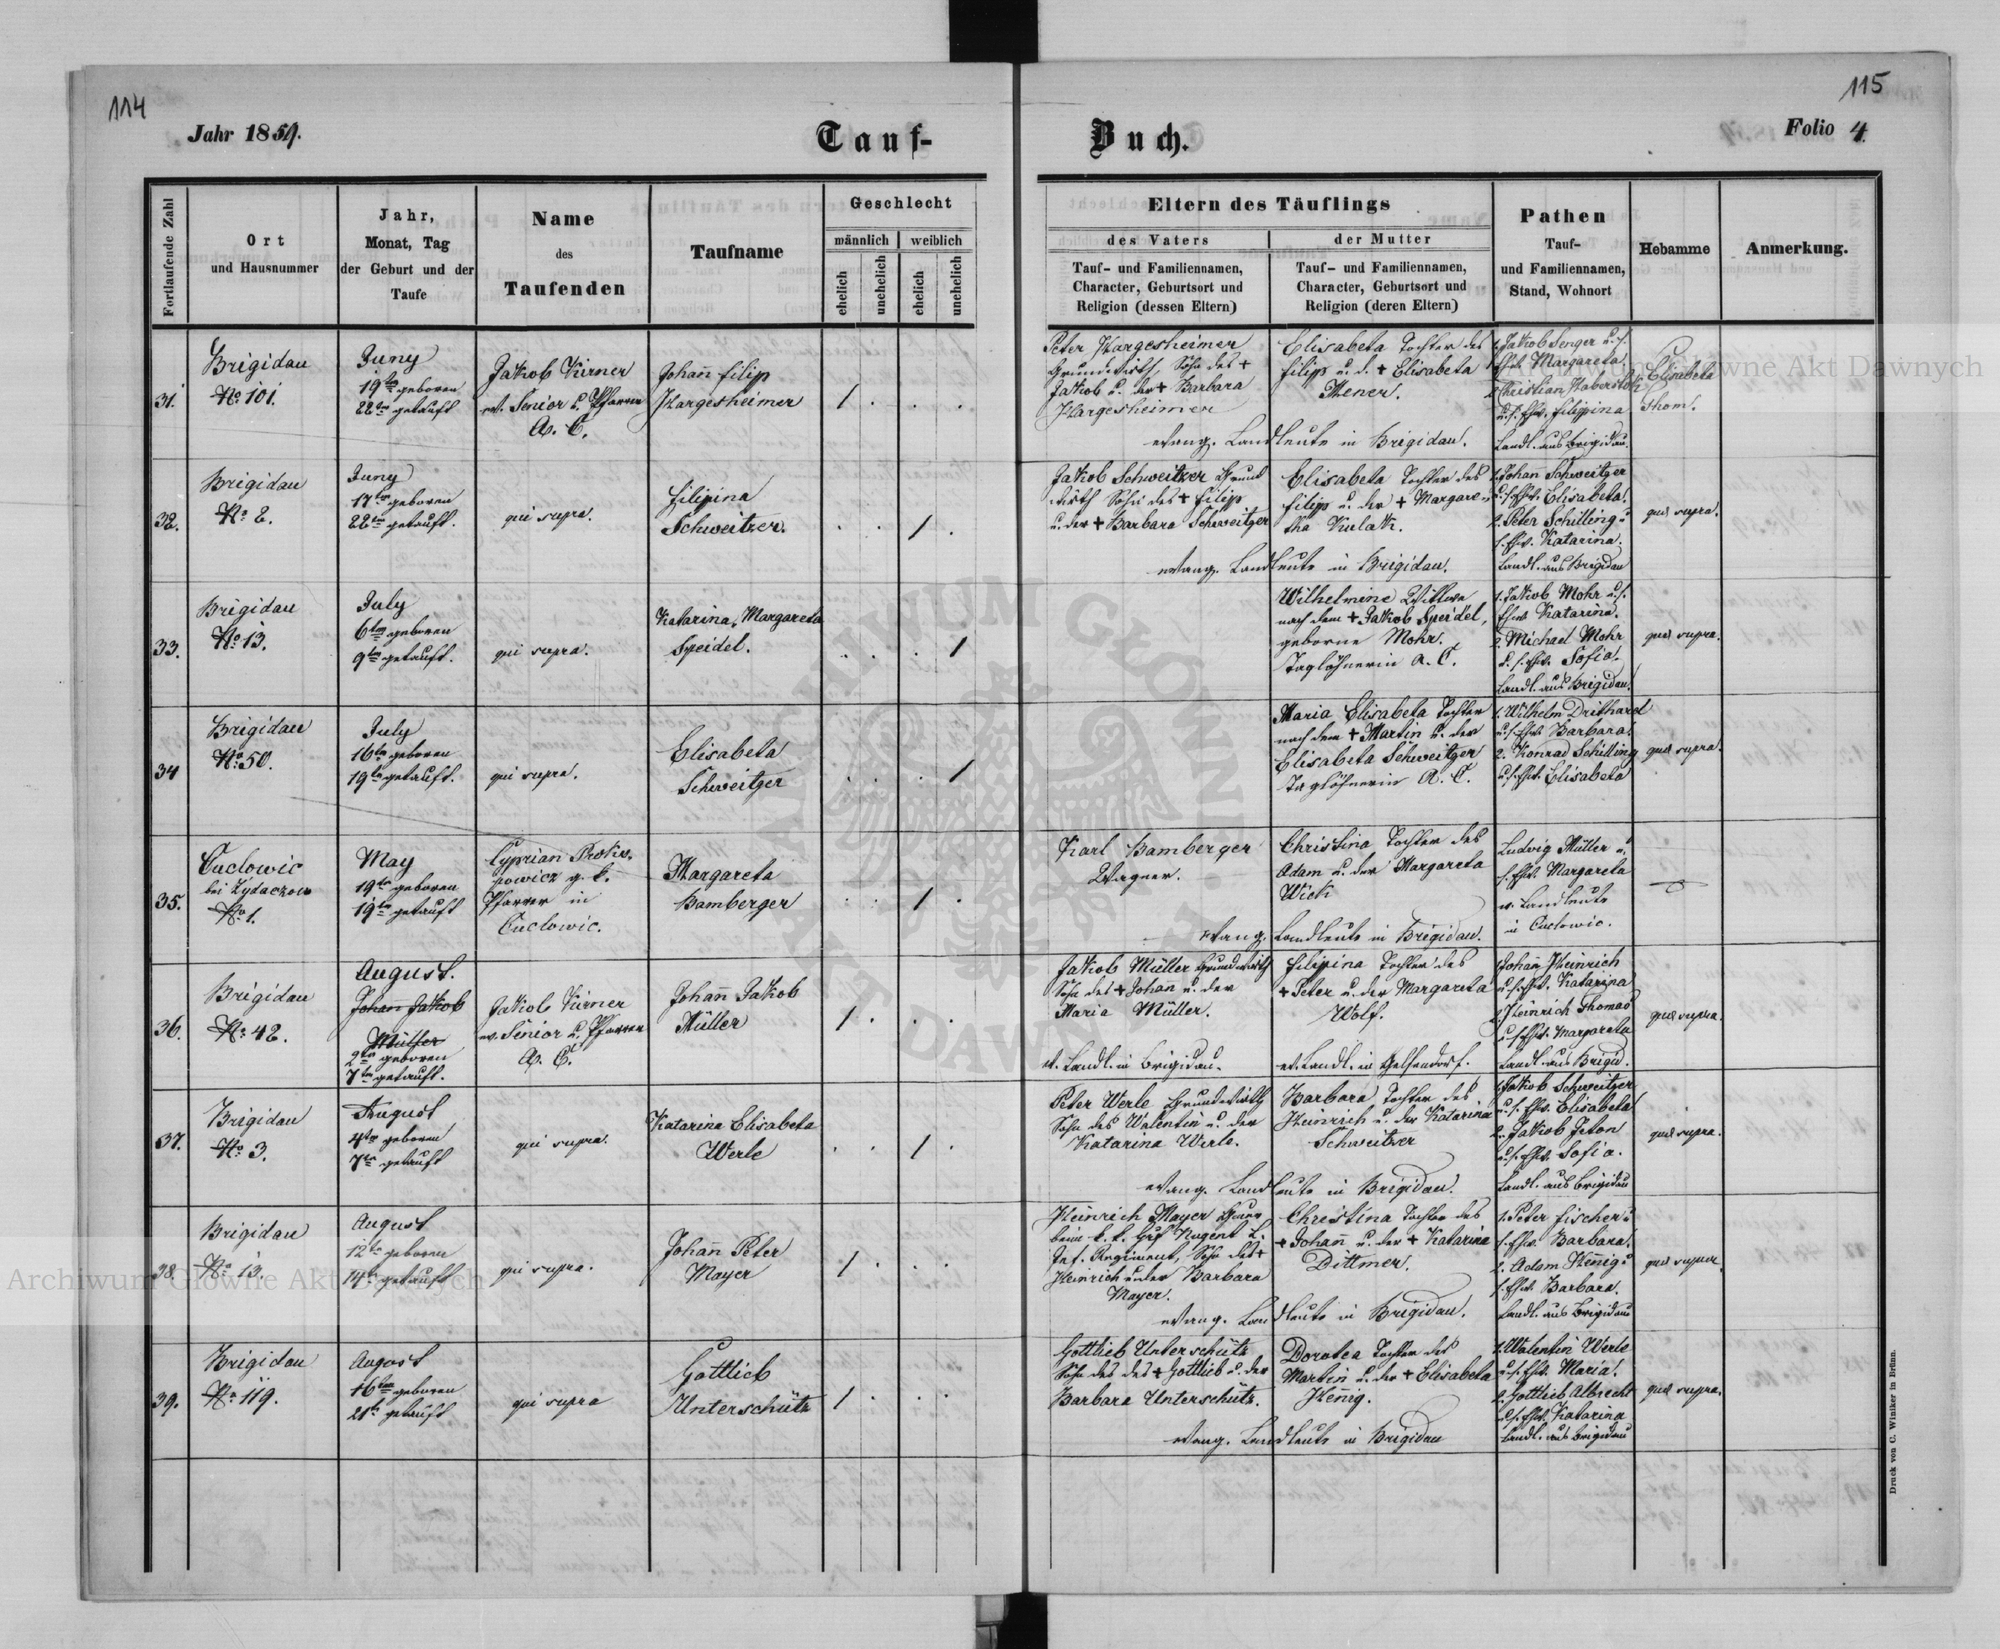 114
115
Jahr 1859.
Tauf-
Buch.
Folio 4.
Fortlaufende Zahl
Ort
und Hausnummer
Jahr,
Monat, Tag
der Geburt und der
Taufe
Name
des
Taufenden
Taufname
Geschlecht
männlich
weiblich
ehelich
unehelich
ehelich
unehelich
Eltern des Täuflings
des Vaters
der Mutter
Tauf- und Familiennamen,
Character, Geburtsort und
Religion (dessen Eltern)
Tauf- und Familiennamen,
Character, Geburtsort und
Religion (deren Eltern)
Pathen
Tauf-
und Familiennamen,
Stand, Wohnort
Hebamme
Anmerkung.
31.
Brigidau
No 101.
Juny
19ten geboren
22ten getauft
Jakob Kirner
ev. Senior u. Pfarrer
A. C.
Johañ Filip
Hargesheimer
/ . . .
Peter Hargesheimer
Grundwirth, Sohn des +
Jakob u. der + Barbara
Hargesheimer
Elisabeta Tochter des
Filip u. d. + Elisabeta
evang. Landleute in Brigidau.
1. Jakob Senger u. s.
Ehw. Margareta.
2. Christian
u. s. Ehw. Filippina
Landl. aus Brigidau.
Elisabeta
Thom.
32.
Brigidau
No 2.
Juny
17ten geboren
22ten getauft.
qui supra.
Filipina
Schweitzer.
. . / .
Jakob Schweitzer Grund
wirth Sohn des + Filip
u. der + Barbara Schweitzer
Elisabeta Tochter des
Filip u. der + Margare-
tha Kulak.
evang. Landleute in Brigidau.
1. Johan Schweitzer
u. s. Ehw. Elisabeta.
2. Peter Schilling u
s. Ehw. Katarina.
Landl. aus Brigidau
quæ supra.
33.
Brigidau
No 13.
July
6ten geboren
9ten getauft.
qui supra.
Katarina, Margareta
Speidel.
. . . /
Wilhelmine Wittwe
nach dem + Jakob Speidel,
geborne Mohr.
Taglöhnerin A. C.
1. Jakob Mohr u. s.
Ehw. Katarina.
2. Michael Mohr
u. s. Ehw. Sofia.
Landl. aus Brigidau.
quæ supra.
34
Brigidau
No 50.
July
16ten geboren
19ten getauft.
qui supra.
Elisabeta
Schweitzer
. . . /
Maria Elisabeta Tochter
nach dem + Martin u. der
Elisabeta Schweitzer
Taglöhnerin A. C.
1. Wilhelm Drithard
u. s. Ehw. Barbara.
2. Konrad Schilling
u. s. Ehw. Elisabeta
quæ supra.
35.
Cuclowic
bei Zydaczow
No 1.
May
19ten geboren
19ten getauft
Cyprian Proko-
powicz g. k.
Pfarrer in
Cuclowic.
Margareta
Bamberger
. . / .
Karl Bamberger
Wagner.
Christina Tochter des
Adam u. der Margareta
Wick
evang. Landleute in Brigidau.
Ludwig Müller u.
s. Ehw. Margareta
ev. Landleute
in Cuclowic.
36.
Brigidau
No 42.
August.
Johann Jakob
Müller
2ten geboren
7ten getauft.
Jakob Kirner
ev. Senior u. Pfarrer
A. C.
Johañ Jakob
Müller
/ . . .
Jakob Müller Grundwirth
Sohn des + Johan u. der
Maria Müller.
ev. Landl. in Brigidau.
Filipina Tochter des
+ Peter u. der Margareta
Wolf.
ev. Landl. in Gelsendorf.
1. Johañ Heinrich
u. s. Ehw. Katarina
2. Heinrich Thomas
u. s. Ehw. Margareta
Landl. aus Brigid.
quæ supra.
37.
Brigidau
No 3.
August
4ten geboren
7ten getauft
qui supra.
Katarina Elisabeta
Werle
. . / .
Peter Werle Grundwirth
Sohn des Walentin u. der
Katarina Werle.
Barbara Tochter des
Heinrich u. der Katarina
Schweitzer
evang. Landleute in Brigidau.
1. Jakob Schweitzer
u. s. Ehw. Elisabeta
2. Jakob Jeton
u. s. Ehw. Sofia.
Landl. aus Brigidau
quæ supra.
38.
Brigidau
No 13.
August
12ten geboren
14ten getauft
qui supra.
Johañ Peter
Mayer
/ . . .
Heinrich Mayer
beim k. k. Graf Nugent L.
Inf. Regiment, Sohn des +
Heinrich u. der Barbara
Mayer.
Christina Tochter des
+ Johañ u. der + Katarina
Dittmer.
evang. Landleute in Brigidau.
1. Peter Fischer u
s. Ehw. Barbara.
2. Adam Heñig u
s. Ehw. Barbara.
Landl. aus Brigidau
quæ supra.
39.
Brigidau
No 119.
August
16ten geboren
21ten getauft
qui supra
Gottlieb
Unterschütz
/ . . .
Gottlieb Unterschütz
Sohn des des + Gottlieb u. der
Barbara Unterschütz.
Dorotea Tochter des
Martin u. der + Elisabeta
Heñig.
evang. Landleute in Brigidau
1. Walentin Werle
u. s. Ehw. Maria.
2. Gottlieb Albrecht
u. s. Ehw. Katarina
Landl. aus Brigidau
quæ supra.
Druck von C. Winiker in Brünn.
Archiwum Główne Akt Dawnych
Archiwum Główne Akt Dawnych
ARCHIWUM GŁÓWNE AKT DAWNYCH